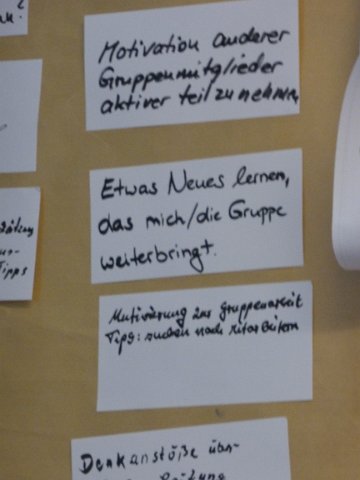 Motivation anderer
Gruppenmitglieder
aktiver teil zu nehmen
Etwas Neues lernen,
das mich/die Gruppe
weiterbringt.
Motivierung zur Gruppenarbeit
Tips: suchen nach Mitarbeitern
Denkanstöße über-
Tipps